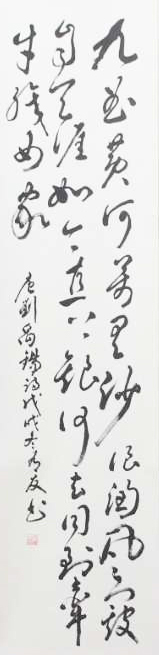 九曲黄河万里沙浪淘风簸
自天涯如今直上银河去同到牵
牛织女家
唐刘禹锡诗戊戌冬月友书